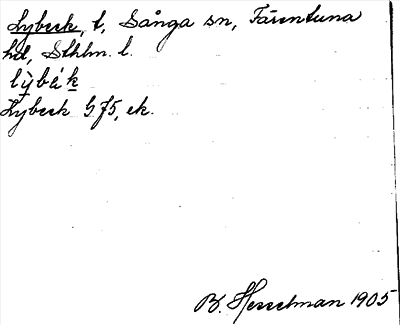 Lybeck, t, Sånga sn, Färentuna
hd, Sthlm. l.
lỳbék
Lybeck G 75, ek.
B. Hesselman 1905